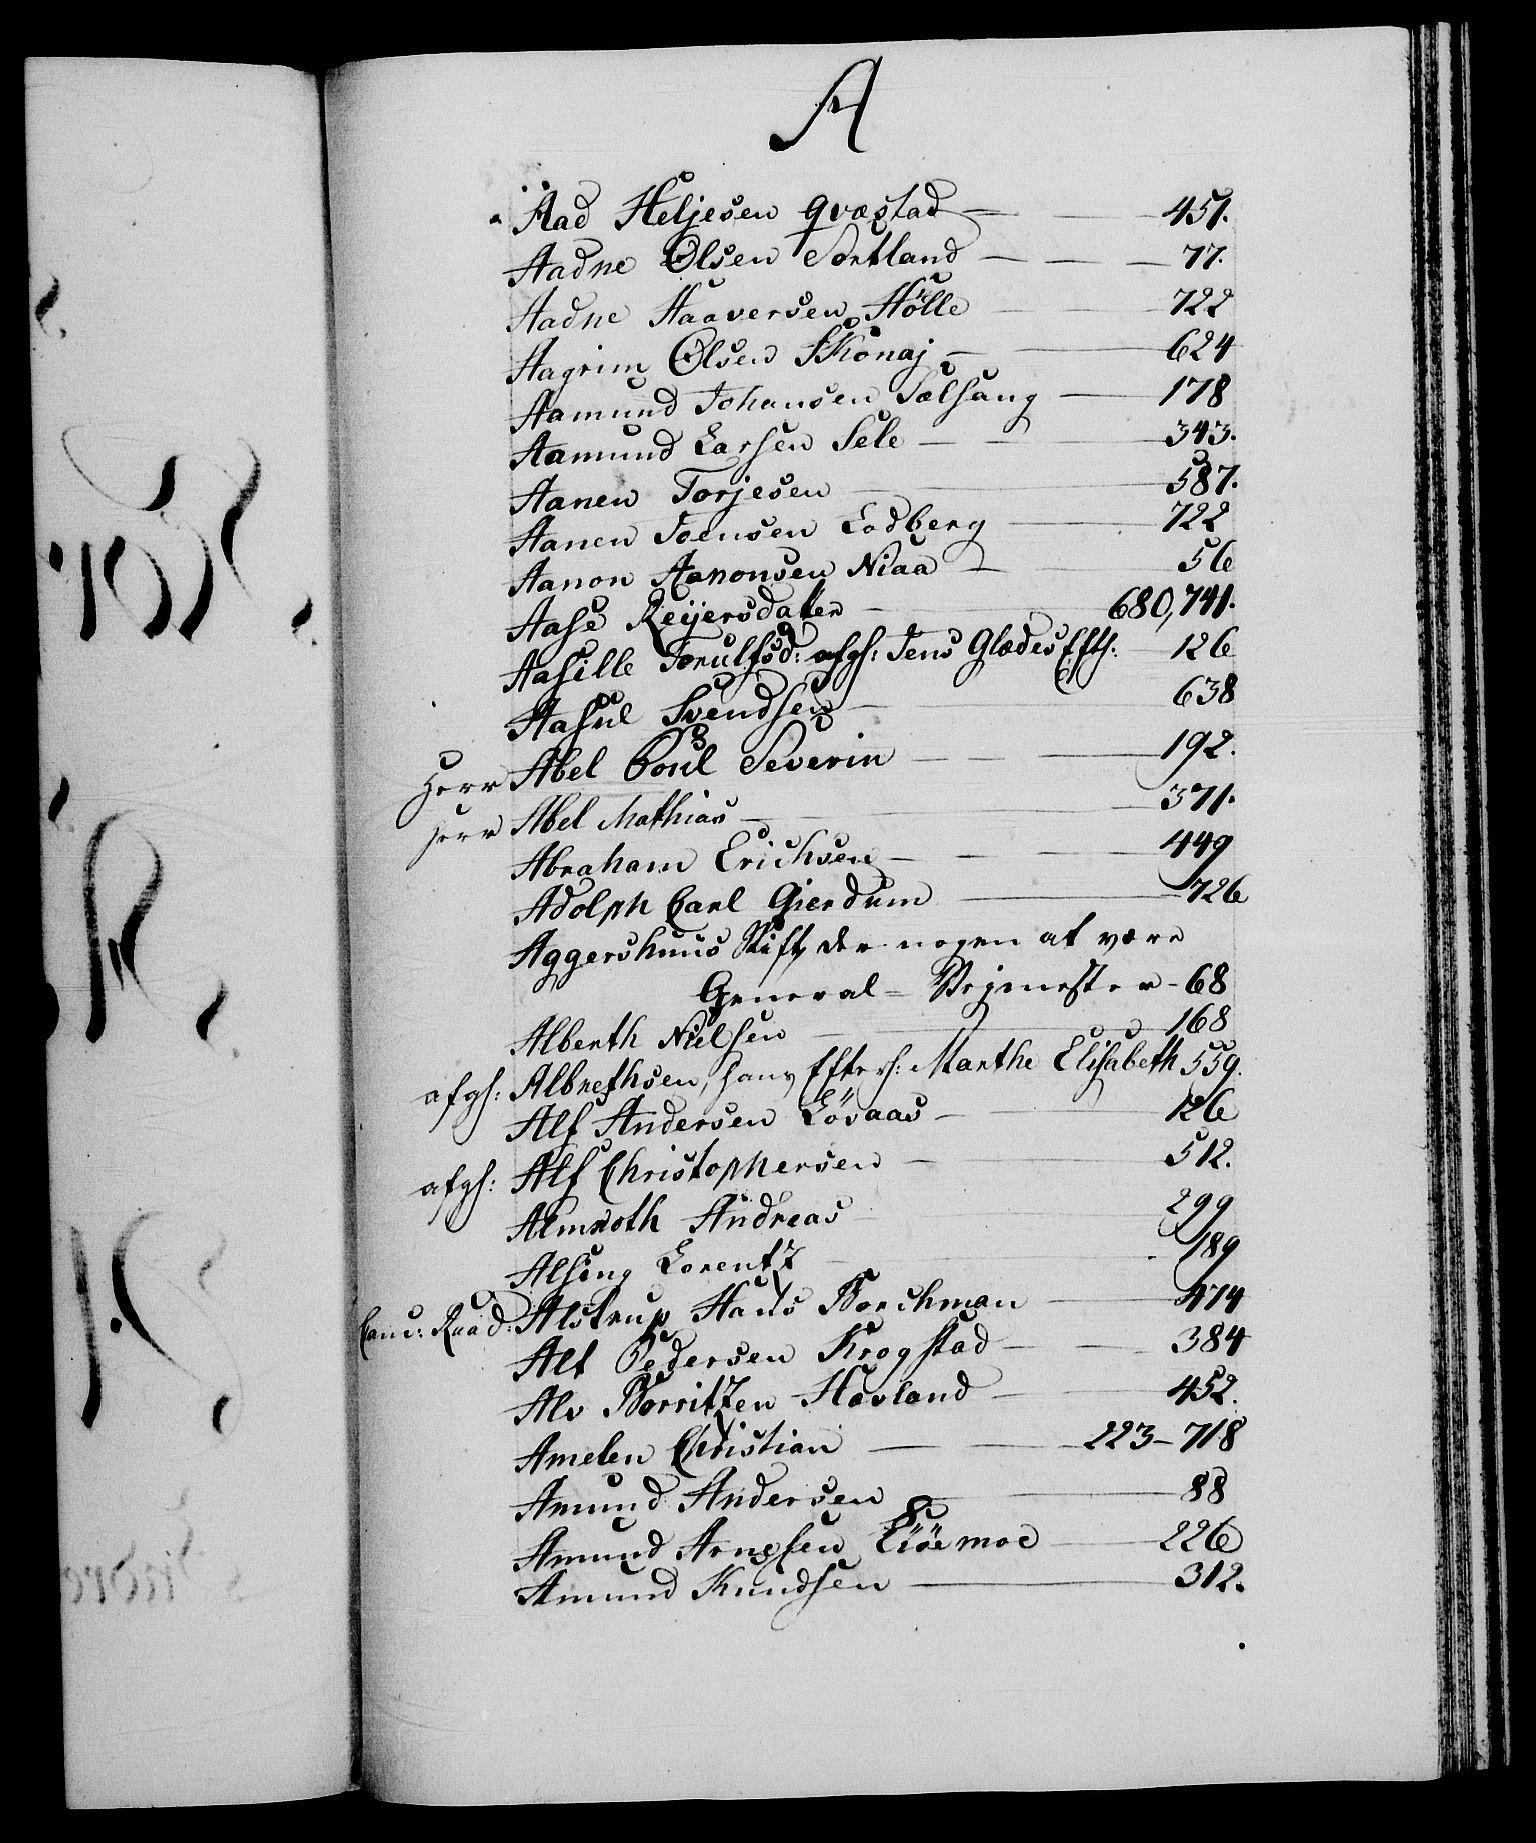 A
Aad Heljesen Qvæstad 451.
Aadne Olsen Sortland 77.
Aadne Haaversen Hölle 722
Aagrim Olsen Skonaj 624
Aamund Johansen Sælsang 178
Aamund Larsen Sele 343.
Aanen Torjesen 587.
Aanen Joensen Lodberg 722
Aanon Aanonsen Niaa 56
Aase Reijersdatter 680, 741.
Aasille Torulfsd: afgs: Jens Glædes Efts: 126
Aasul Svendsen 638
Herr Abel Poul Severin 192.
Herr Abel Mathias 371.
Abraham Erichsen 449
Adolph Carl Gierdum 726
Aggershuus Stift der nogen at være
General-Vejmester 68
Alberth Nielsen 168
afgs: Albrethsen, hans Efters: Marthe Elisabeth 559.
Alf Andersen Lösaas 126
afgs: Alf Christophersen 512.
Almroth Andreas 299
Alsing Lorentz 189
Canc: Raad: Alstrup Hans Borchman 474
Alf Pedersen Krogstad 384
Alv Borritzen Havland 452.
Amelen Christian 223-718
Amund Andersen 88
Amund Arnesen Liöemoe 226
Amund Knudsen 312.